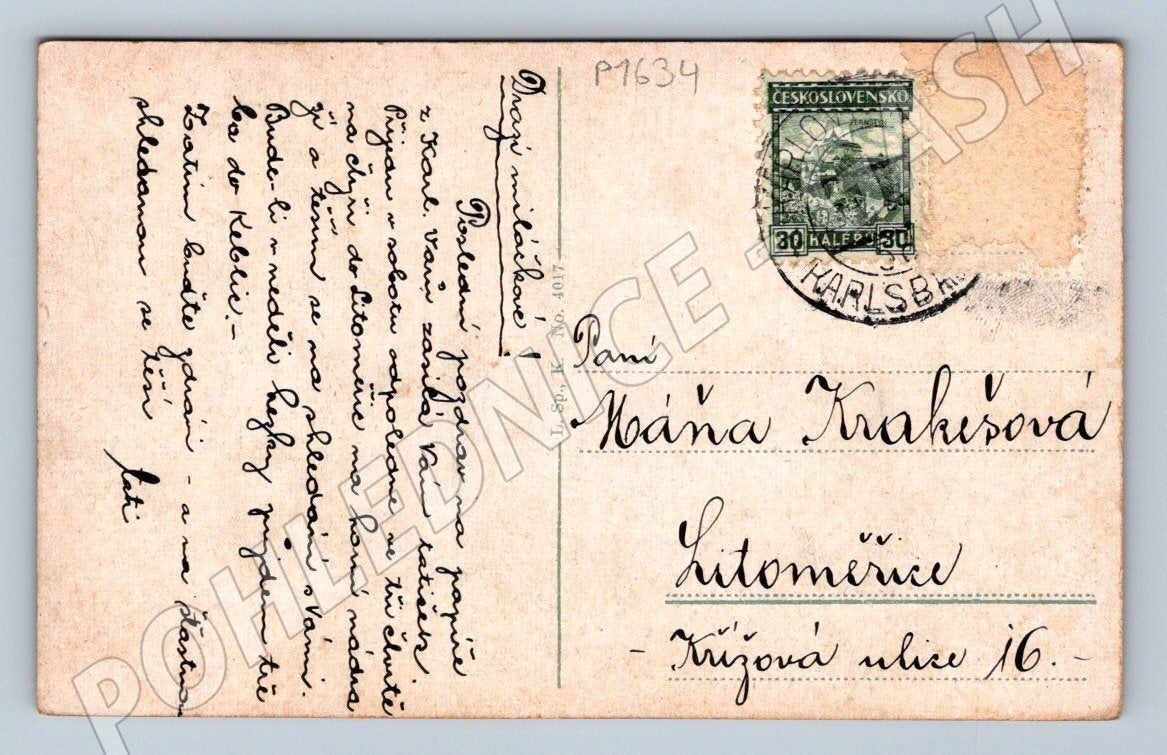 P1634
ČESKOSLOVENSKO
PERNŠTYN
30 HALÉŘŮ 30
KARLO
KARLSB
L. Sp., K No. 4017
Drazí miláčkové!
Poslední pozdrav na papíře
z Karl. Varů zasílá Vám tatíček
Přijau v sobotu odpoledne ve tři čtvrtě
na čtyři do Litoměřic na horní nádra
ží a těším se na shledání s Vámi.
Bude-li v neděli hezky pujdem tře
ba do Keblic.-
Zatím buďte zdrávi - a na šťastnou
shledanou se těší
tati
Paní
Máňa Krakešová
Litoměřice
- Křížová ulice 16.-
POHLEDNICE - ASH